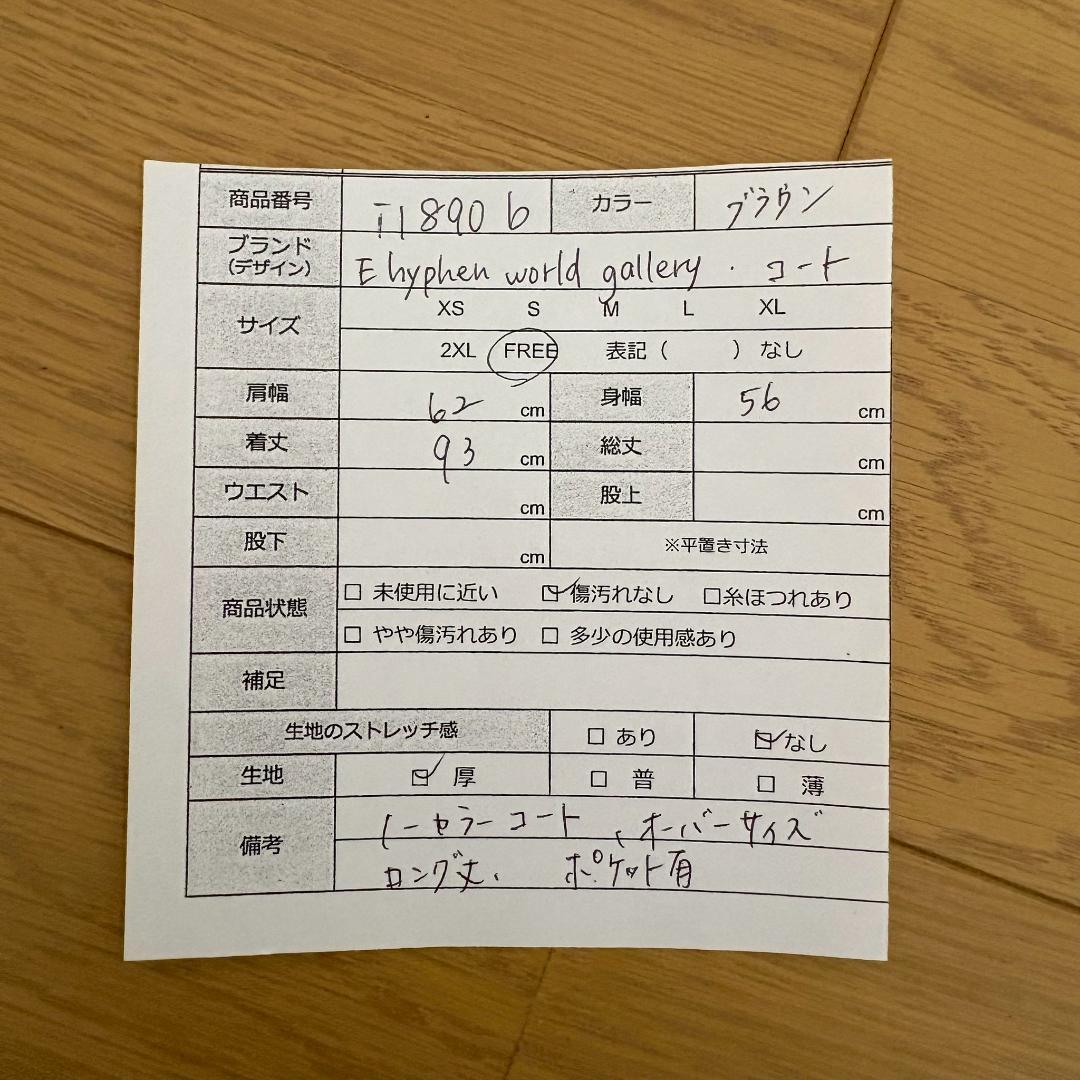 商品番号 i1890b カラー ブラウン
ブランド
(デザイン) E hyphen world gallery . コート
サイズ XS S M L XL
2XL FREE 表記 ( ) なし
肩幅 62 cm 身幅 56 cm
着丈 93 cm 総丈 cm
ウエスト cm 股上 cm
股下 cm ※平置き寸法
商品状態 □ 未使用に近い ☑ 傷汚れなし □糸ほつれあり
□ やや傷汚れあり □ 多少の使用感あり
補足
生地のストレッチ感 □ あり ☑ なし
生地 ☑ 厚 □ 普 □ 薄
備考 ノーセラーコート、オーバーサイズ
ロング丈、 ポケット有